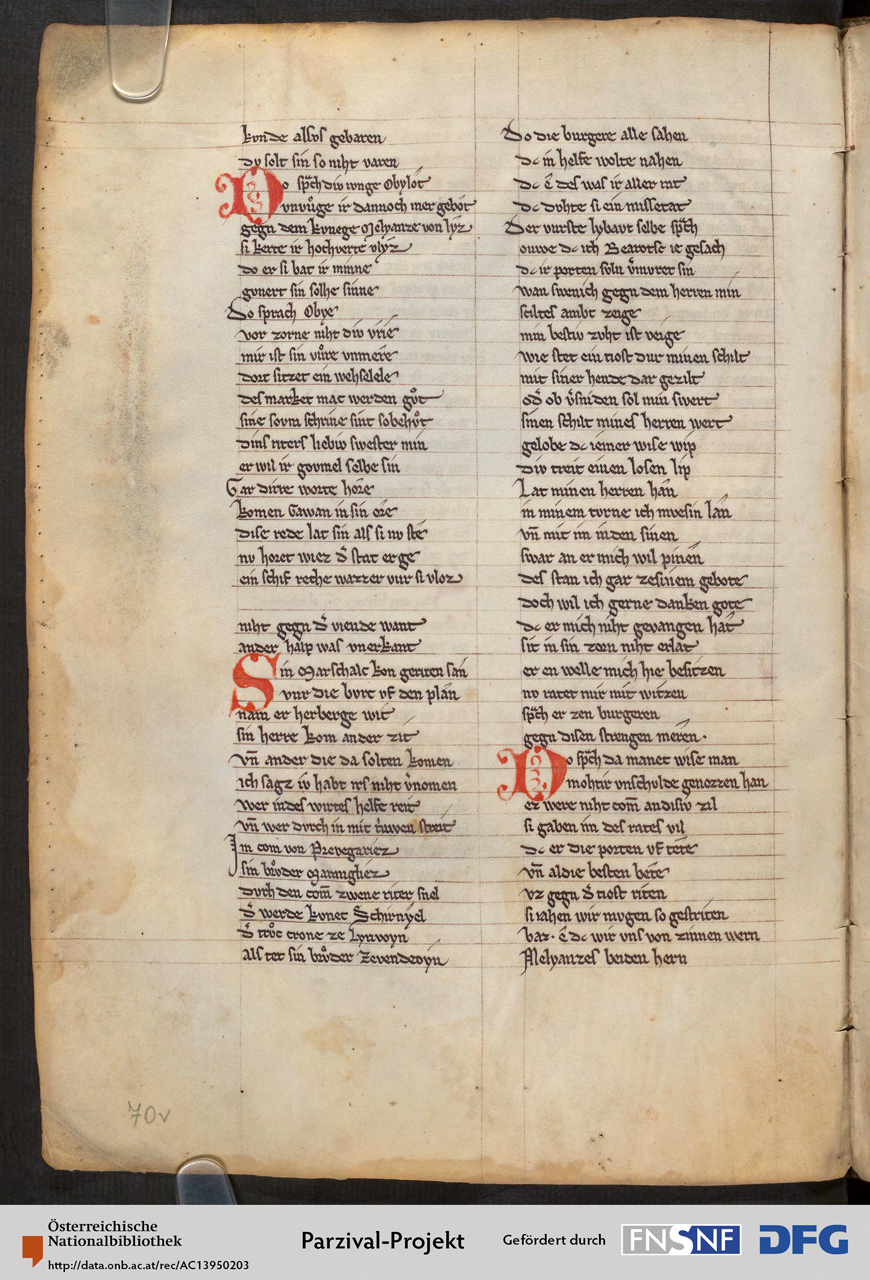 kvnde alsvs gebaren
dv solt sin so niht varen
Do sp̄ch div ivnge Obylot
vnvůge ir dannoch mer gebôt
gegn dem kvnege Melyanze von lyz
si kerte ir hochverte vlyz
do er si bat ir minne
gvnert sin solhe sinne
Do sprach Obye
vor zorne niht div vrie
mir ist sin vůre vnmere
dort sitzet ein wehselere
des market mac werden gůt
sine sovm schrine sint so behůt
dins riters liebiv swester min
er wil ir govmel selbe sin
Gar dirre worte hôre
komen Gawan in sin ore
dise rede lat sin als si nv ste
nv horet wiez d̄ stat erge
ein schif reche wazzer vur si vloz
niht gegn d̄ viende want
ander halp was vnerkant
Sin Marschalc kon geriten san
vur die bvrc vf den plan
nam er herberge wit
sin herre kom ander zit
vn̄ ander die da solten komen
ich sagz iv habt irs niht v̄nomen
wer indes wirtes helfe reit
vn̄ wer dvrch in mit trivwen streit
Im com von Prevegariez
sin brůder Maringliez
dvrch den com̄ zwene riter snel
d̄ werde kvnec Schirnyel
d̄ trůc crone ze Lyrvoyn
als tet sin brůder Zevenderoyn
Do die burgere alle sahen
dc in helfe wolte nahen
dc ē des was ir aller rat
dc dvhte si ein missetat
Der vurste lybavt selbe sp̄ch
ouwe dc ich Bearotsc ie gesach
dc ir porten soln v̄mvret sin
wan swenich gegn dem herren min
sciltes ambt zeige
min bestiv zvht ist veige
wie stet ein tiost dur minen schilt
mit siner hende dar gezilt
od̄ ob v̄sniden sol min swert
sinen schilt mines herren wert
gelobe dc iemer wise wip
div treit einen losen lip
Lat minen herren han
in minem torne ich mvesin lan
vn̄ mit im inden sinen
swar an er mich wil pinen
des stan ich gar zesinem gebote
doch wil ich gerne danken gote
dc er mich niht gevangen hat
sit in sin zorn niht erlat
er en welle mich hie besitzen
nv ratet mir mit witzen
sp̄ch er zen burgeren
gegn disen strengen meren.
Do sp̄ch da manec wise man
mohtir vnschvlde genozzen han
ez were niht com̄ andisiv zil
si gaben im des rates vil
dc er die porten vf tete
vn̄ al die besten bete
vz gegn d̄ tiost riten
si iahen wir mvgen so gestriten
baz. ē dc wir vns von zinnen wern
Melyanzes beiden hern
70v
Österreichische
Nationalbibliothek
http://data.onb.ac.at/rec/AC13950203
Parzival-Projekt
Gefördert durch
FNSNF
DFG